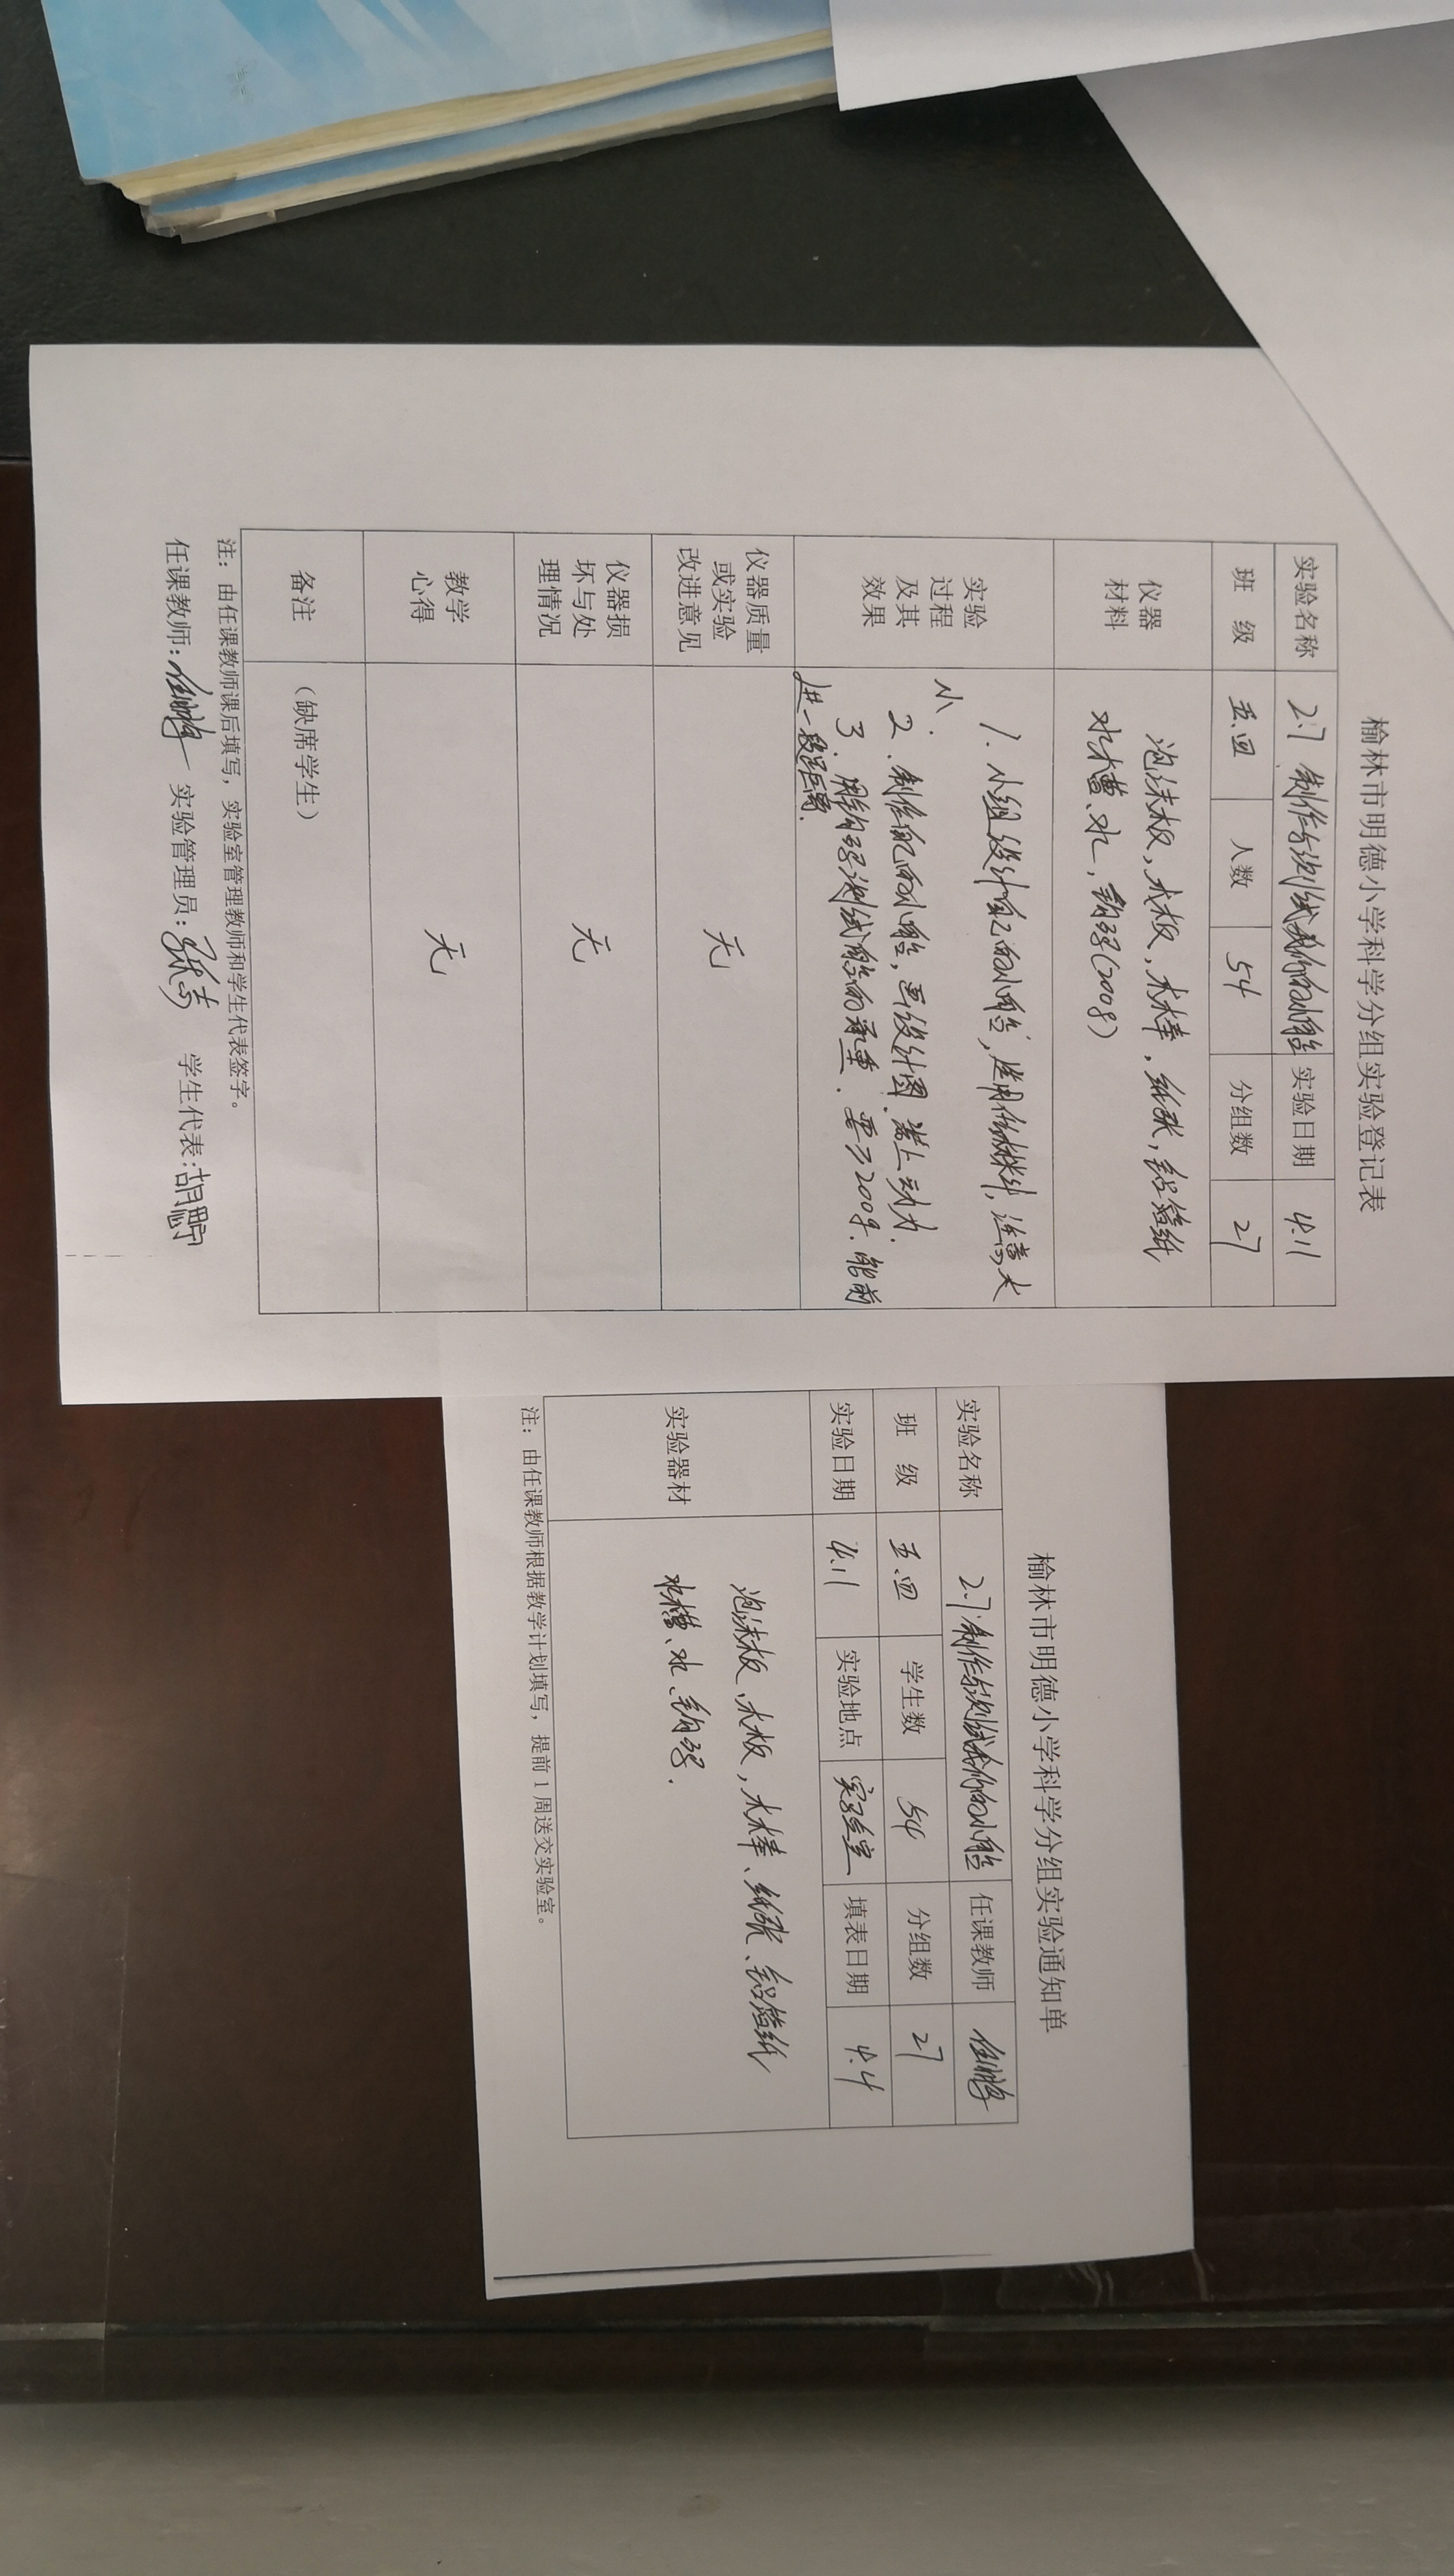 榆林市明德小学科学分组实验登记表
实验名称 2.7 制作与测试我们的小船 实验日期 4.11
班 级 五.四 人数 54 分组数 27
仪器
材料
泡沫板，木板，木棒，纸张，铝箔纸
水槽、水，钩码(200g)
实验
过程
及其
效果
1. 小组设计自己的小船，选用什么材料，连需大
小.
2. 制作自己的小船，画设计图.装上动力.
3. 用钩码测试船的承重. 要≥200g. 能前
进一段距离.
仪器质量
或实验
改进意见
无
仪器损
坏与处
理情况
无
教学
心得
无
备注
（缺席学生）
注：由任课教师课后填写，实验室管理教师和学生代表签字。
任课教师： 实验管理员： 学生代表:
榆林市明德小学科学分组实验通知单
实验名称 2.7 制作与测试我们的小船 任课教师
班 级 五.四 学生数 54 分组数 27
实验日期 4.11 实验地点 实验室 填表日期 4.4
实验器材
泡沫板、木板，木棒、纸张、铝箔纸
水槽、水、钩码.
注：由任课教师根据教学计划填写，提前 1 周送交实验室。